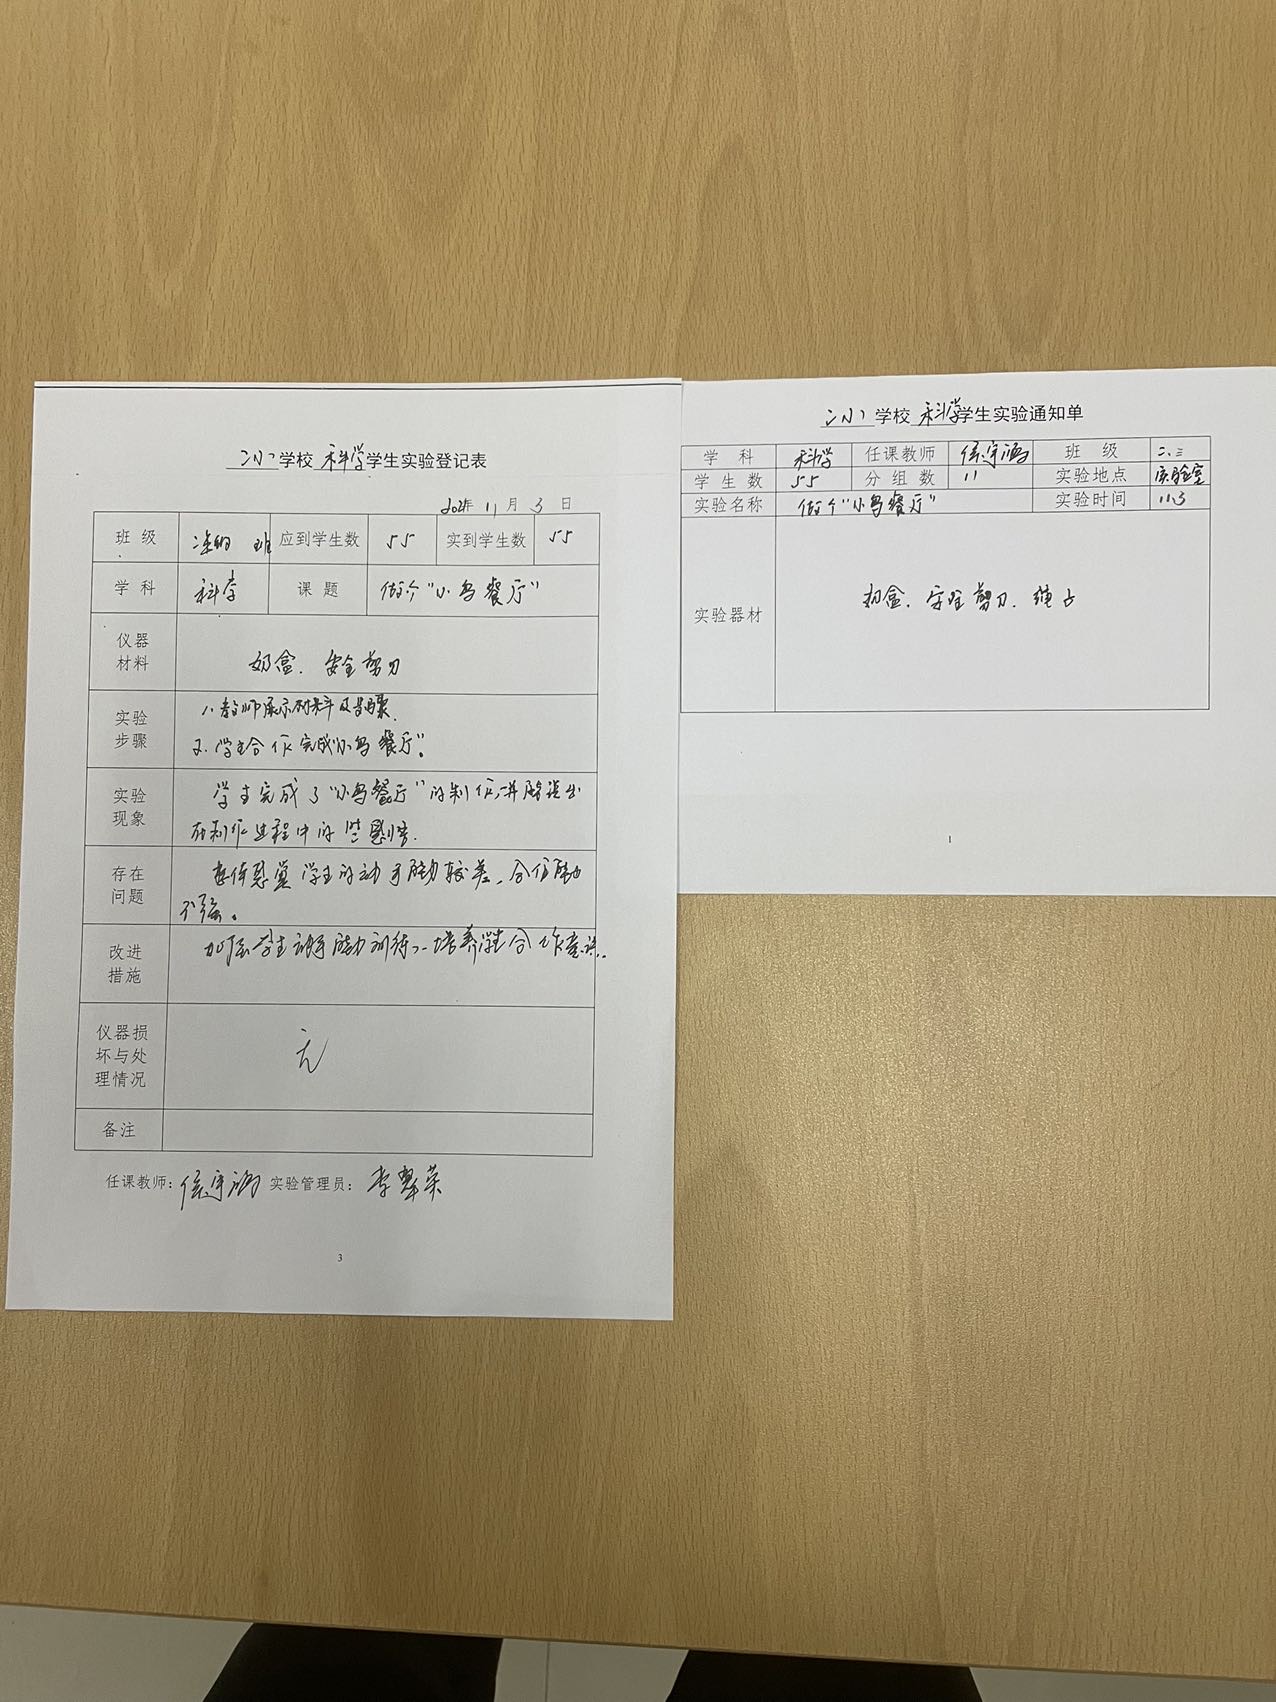 三小学校 科学学生实验登记表
2021年 11月 3日
班级 班 应到学生数 55 实到学生数 55
学科 科学 课题 做个“小鸟餐厅”
仪器材料 奶盒、安全剪刀
实验步骤 1、教师展示材料及步骤、
2、学生合作完成“小鸟餐厅”。
实验现象 学生完成了“小鸟餐厅”的制作,并能说出
在制作过程中的
存在问题 学生的动手能力较差、合作能力
不强。
改进措施 加强学生动手能力训练、培养学生合作意识.
仪器损坏与处理情况 无
备注
任课教师: 侯宇涵 实验管理员: 李
3
三小学校 科学学生实验通知单
学科 科学 任课教师 侯宇涵 班级 二.三
学生数 55 分组数 11 实验地点 实验室
实验名称 做个“小鸟餐厅” 实验时间 11.3
实验器材 奶盒、安全剪刀、绳子
1